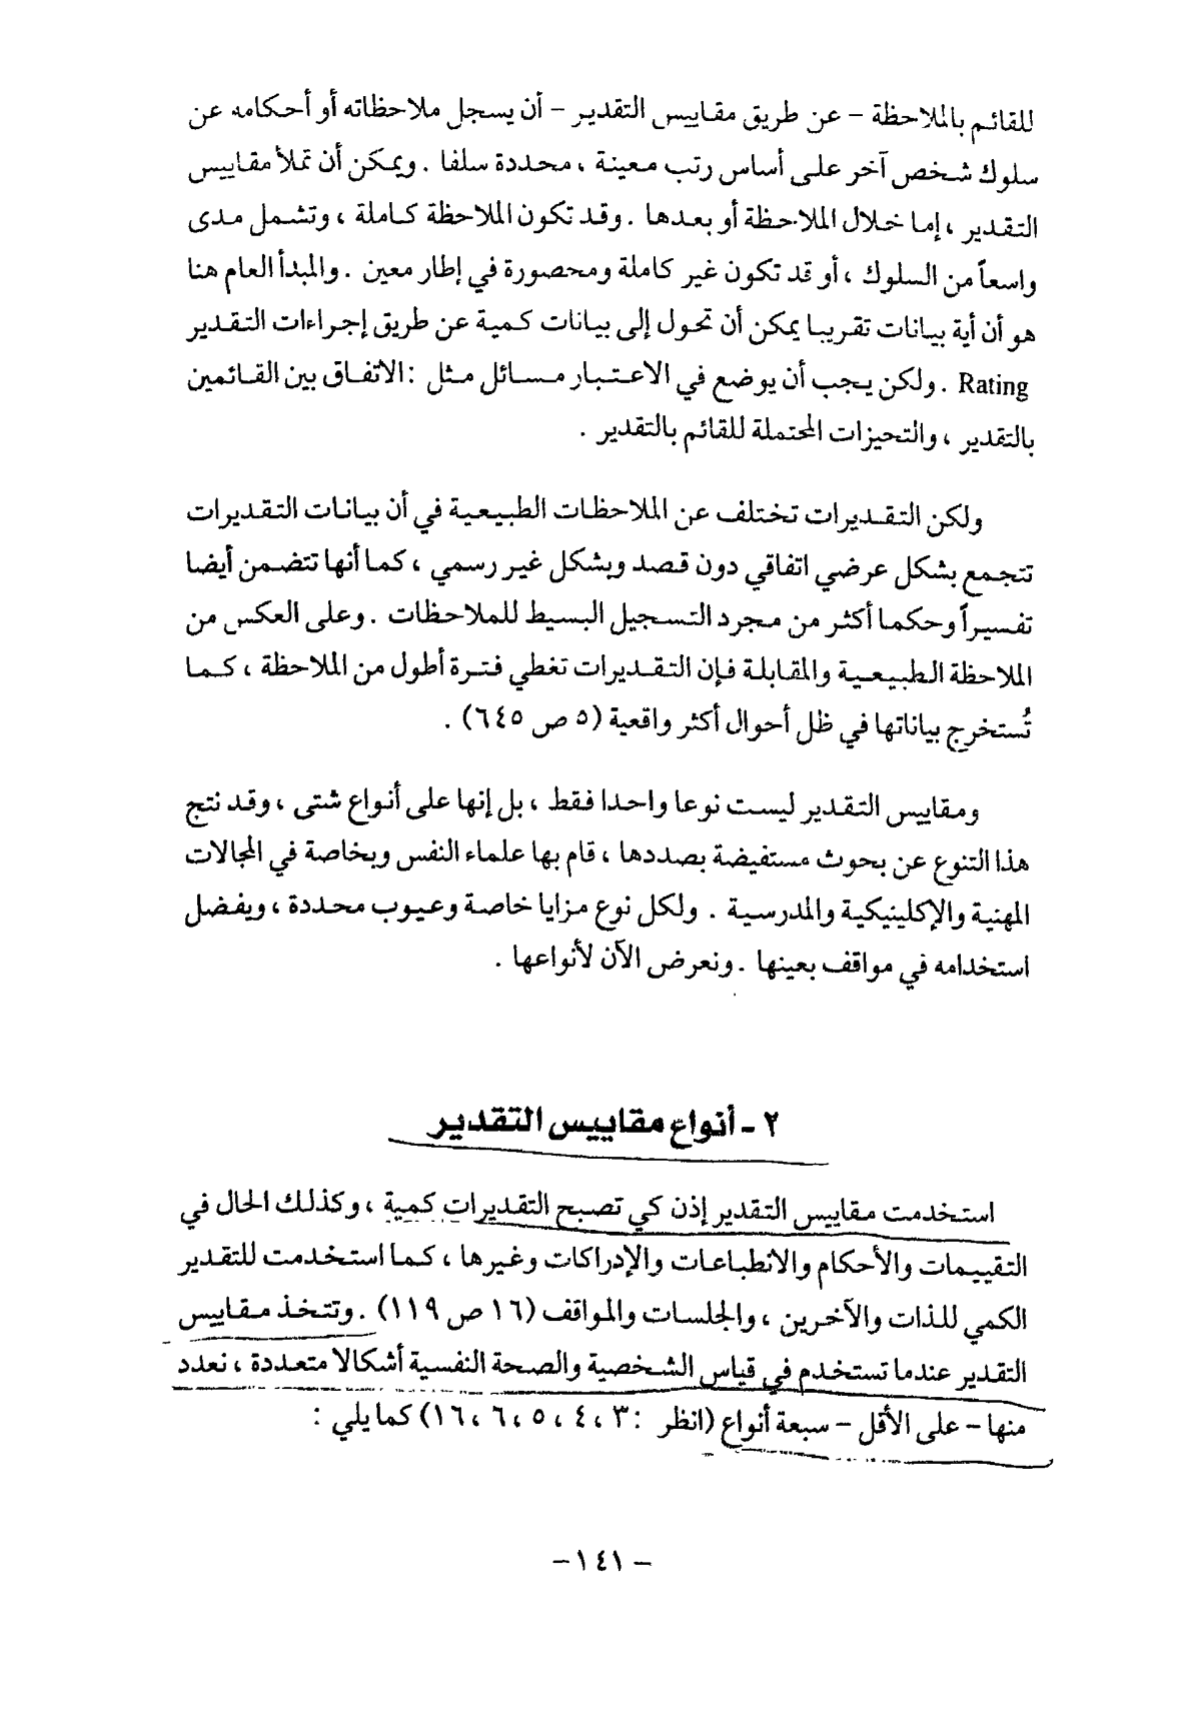 للقائم بالملاحظة – عن طريق مقاييس التقدير – أن يسجل ملاحظاته أو أحكامه عن
سلوك شخص آخر على أساس رتب معينة ، محددة سلفا . ويمكن أن تملأ مقاييس
التقدير ، إما خلال الملاحظة أو بعدها . وقد تكون الملاحظة كاملة ، وتشمل مدى
واسعاً من السلوك ، أو قد تكون غير كاملة ومحصورة في إطار معين . والمبدأ العام هنا
هو أن أية بيانات تقريبا يمكن أن تحول إلى بيانات كمية عن طريق إجراءات التقدير
Rating . ولكن يجب أن يوضع في الاعتبار مسائل مثل : الاتفاق بين القائمين
بالتقدير ، والتحيزات المحتملة للقائم بالتقدير .
ولكن التقديرات تختلف عن الملاحظات الطبيعية في أن بيانات التقديرات
تتجمع بشكل عرضي اتفاقي دون قصد وبشكل غير رسمي ، كما أنها تتضمن أيضا
تفسيراً وحكما أكثر من مجرد التسجيل البسيط للملاحظات . وعلى العكس من
الملاحظة الطبيعية والمقابلة فإن التقديرات تغطي فترة أطول من الملاحظة ، كما
تُستخرج بياناتها في ظل أحوال أكثر واقعية (٥ ص ٦٤٥) .
ومقاييس التقدير ليست نوعا واحدا فقط ، بل إنها على أنواع شتى ، وقد نتج
هذا التنوع عن بحوث مستفيضة بصددها ، قام بها علماء النفس وبخاصة في المجالات
المهنية والإكلينيكية والمدرسية . ولكل نوع مزايا خاصة وعيوب محددة ، ويفضل
استخدامه في مواقف بعينها . ونعرض الآن لأنواعها .
٢ - أنواع مقاييس التقدير
استخدمت مقاييس التقدير إذن كي تصبح التقديرات كمية ، وكذلك الحال في
التقييمات والأحكام والانطباعات والإدراكات وغيرها ، كما استخدمت للتقدير
الكمي للذات والآخرين ، والجلسات والمواقف (١٦ ص ١١٩) . وتتخذ مقاييس
التقدير عندما تستخدم في قياس الشخصية والصحة النفسية أشكالا متعددة ، نعدد
منها – على الأقل – سبعة أنواع (انظر : ٣ ، ٤ ، ٥ ، ٦ ، ١٦) كما يلي :
– ١٤١ –